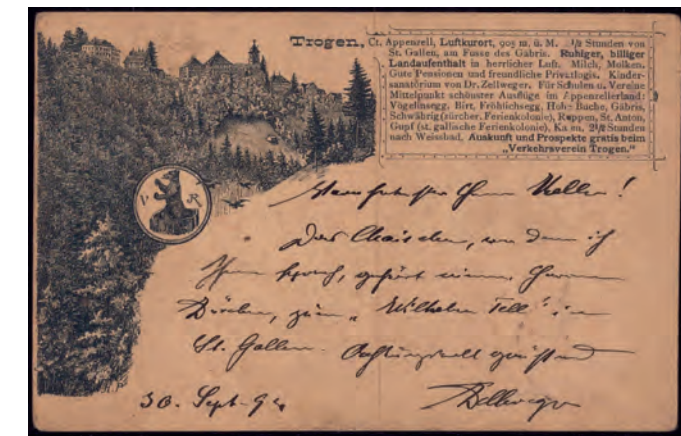 Trogen, Ct. Appenzell, Luftkurort, 905 m. ü. M. 1/2 Stunden von
St. Gallen, am Fusse des Gäbris. Ruhiger, billiger
Landaufenthalt in herrlicher Luft. Milch, Molken.
Gute Pensionen und freundliche Privatlogis. Kinder-
sanatorium von Dr. Zellweger. Für Schulen u. Vereine
Mittelpunkt schönster Ausflüge im Appenzellerland:
Vögelinsegg, Birt, Fröhlichsegg, Hohe Buche, Gäbris,
Schwäbrig (zürcher. Ferienkolonie), Ruppen, St. Anton,
Gupf (st. gallische Ferienkolonie), 2 1/2 Stunden
nach Weissbad. Auskunft und Prospekte gratis beim
„Verkehrsverein Trogen.“
V R
Herr Keller!
Das Chaischen, von dem ich
Ihnen sprach, gehört einem Herrn
zum „Wilhelm Tell“ in
St. Gallen. Achtungsvoll grüssend
30. Sept. Zellweger